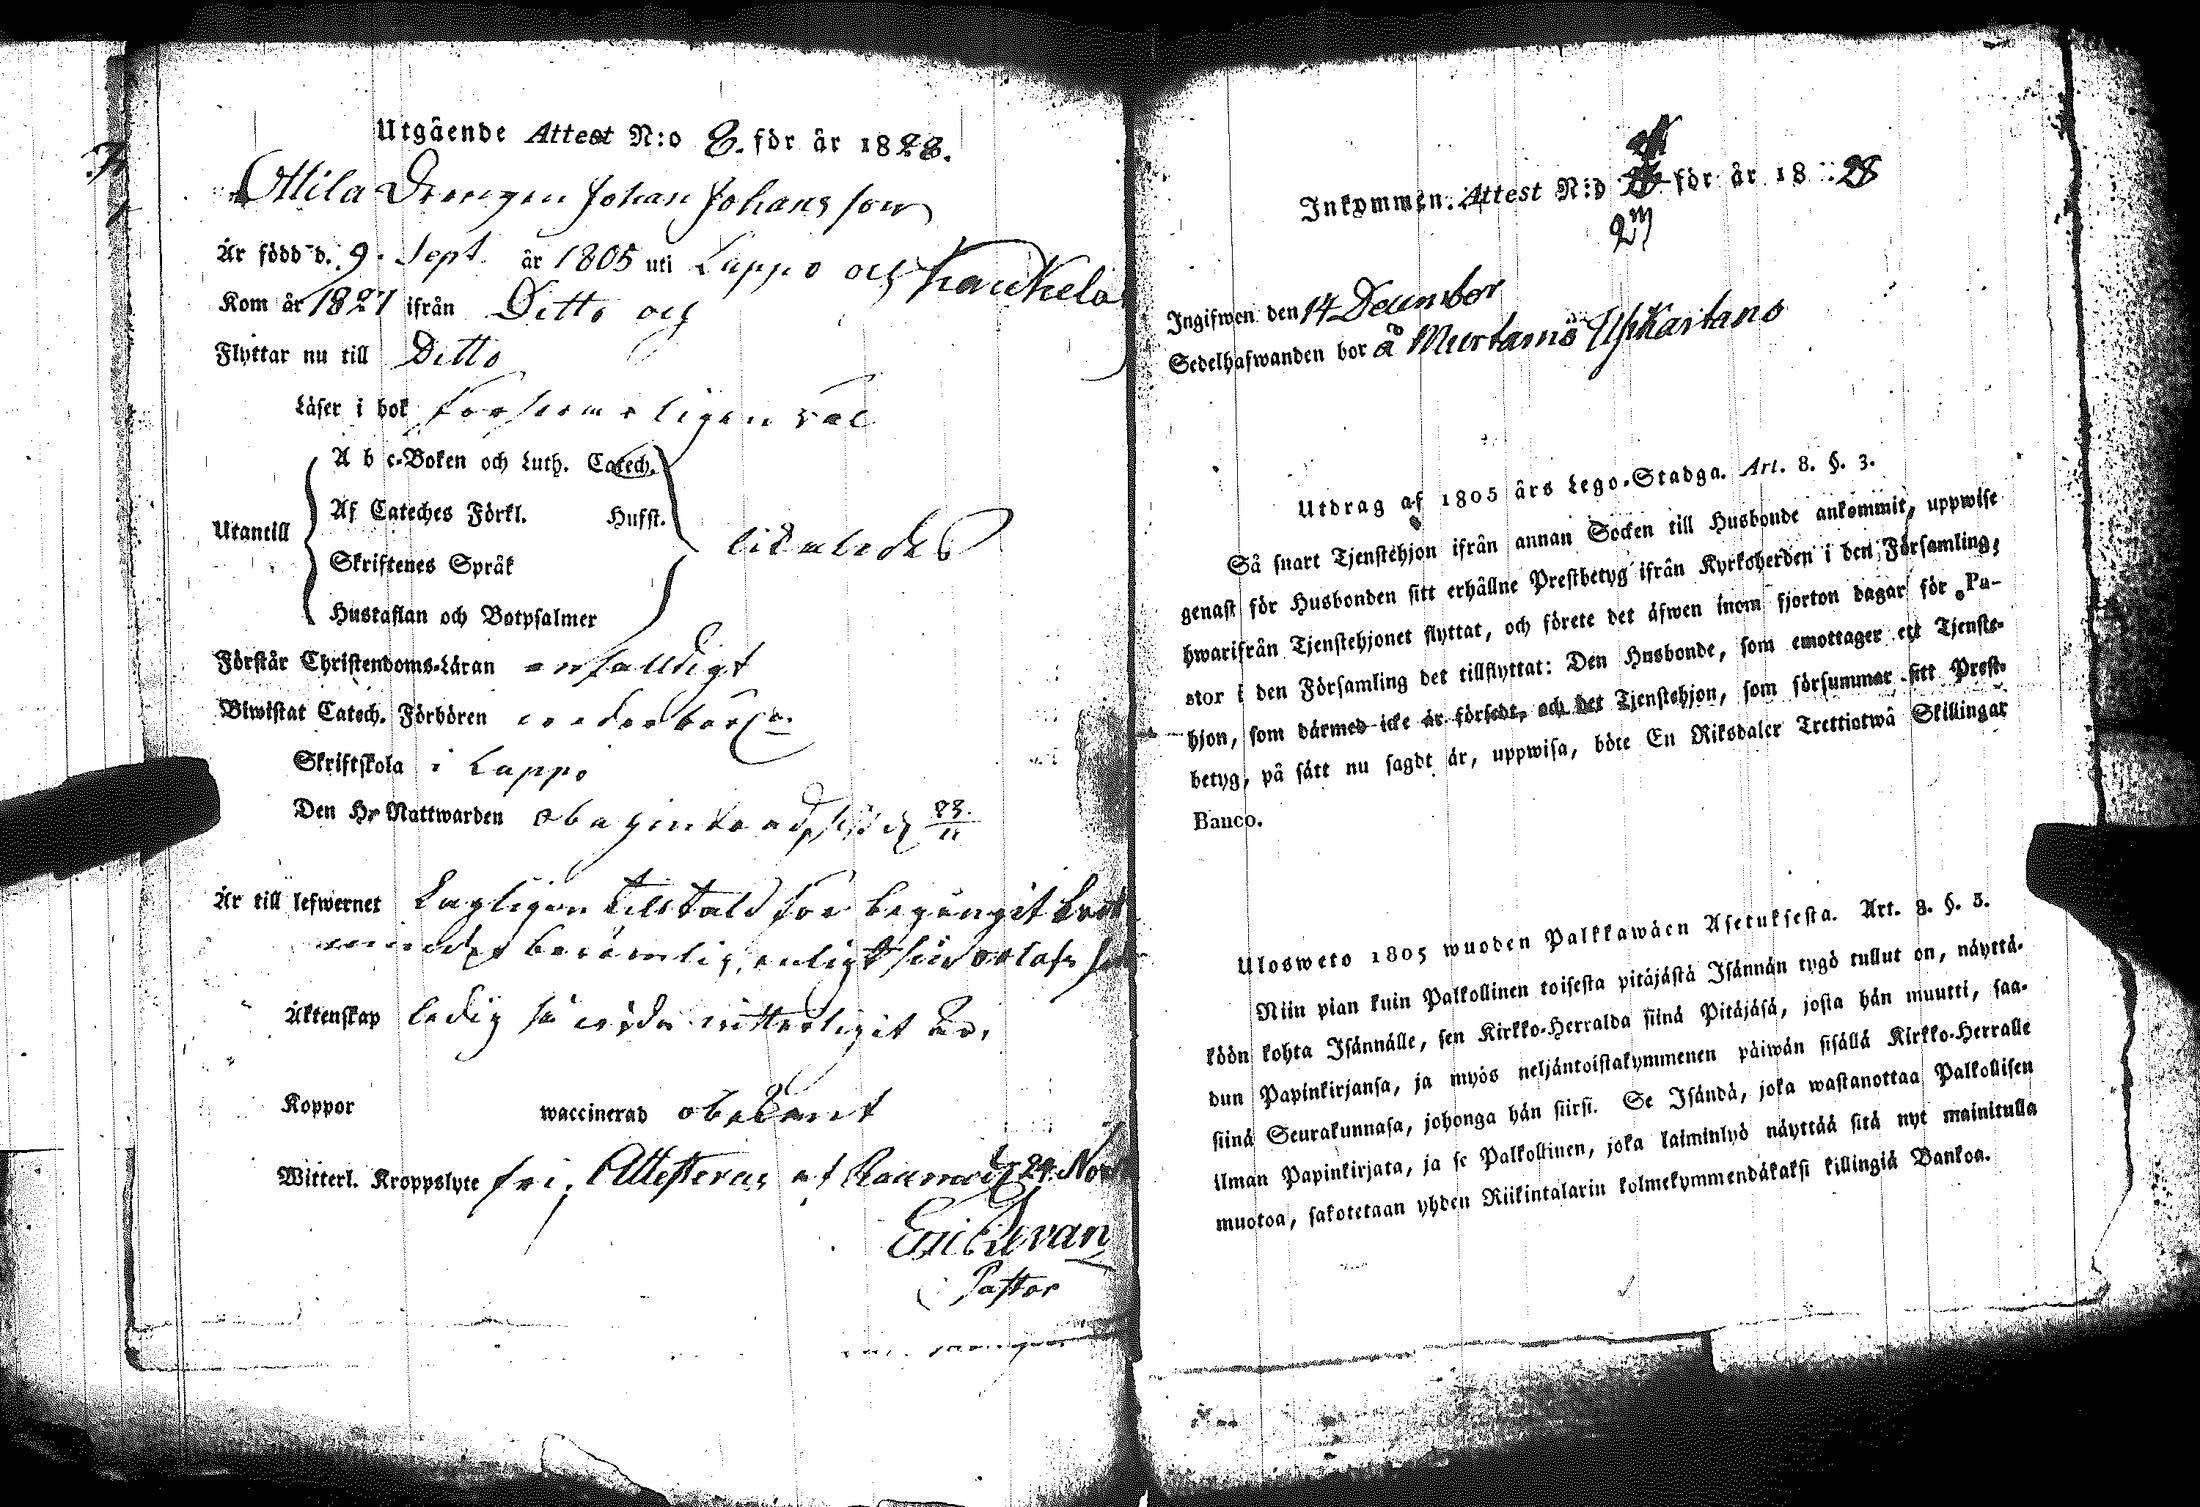 Utgående Attest N:o 8. för år 1828.
Ottila Drengen Johan Johansson
Är född d. 9. Sept. år 1805 uti Lappo och Haukela
Kom år 1827 ifrån Ditto och
Flyttar nu till Ditto
Läser i bok försvarligen väl
A b c-Boken och Luth. Catech.
Af Cateches Förkl. Husst.
Utantill likaledes
Skriftenes Språk
Hustaflan och Botpsalmer
Förstår Christendoms-Läran enfaldigt
Biwistat Catech. Förhören
Skriftskola i Lappo
Den Hr Nattwarden obehindrad
Är till lefwernet Lagligen tilltald för begånget
enligt
Äktenskap ledig så vida vitterligit är,
Koppor waccinerad obekant
Witterl. Kroppslyte fri, Attesteras af Raumo d. 24. Nov
Eric
Pastor
Inkommen Attest N:o för år 18 28
27
Ingifwen den 14 December
Sedelhafwanden bor å Murtamo Ylikartano
Utdrag af 1805 års Lego-Stadga. Art. 8. §. 3.
Så snart Tjenstehjon ifrån annan Socken till Husbonde ankommit, uppwise
genast för Husbonden sitt erhållne Prestbetyg ifrån Kyrkoherden i den Församling,
hwarifrån Tjenstehjonet flyttat, och förete det äfwen inom fjorton dagar för Pa-
stor i den Församling det tillflyttat: Den Husbonde, som emottager ett Tjenste-
hjon, som därmed icke är försedt, och det Tjenstehjon, som försummar sitt Prest-
betyg, på sätt nu sagdt är, uppwisa, böte En Riksdaler Trettiotwå Skillingar
Banco.
Ulosweto 1805 wuoden Palkkawäen Asetuksesta. Art. 8. §. 3.
Niin pian kuin Palkollinen toisesta pitäjästä Isännän tygö tullut on, näyttä-
köön kohta Isännälle, sen Kirkko-Herralda siinä Pitäjäsä, josta hän muutti, saa-
dun Papinkirjansa, ja myös neljäntoistakymmenen päiwän sisällä Kirkko-Herralle
siinä Seurakunnasa, johonga hän siirsi. Se Isändä, joka wastanottaa Palkollisen
ilman Papinkirjata, ja se Palkollinen, joka laiminlyö näyttää sitä nyt mainitulla
muotoa, sakotetaan yhden Riikintalarin kolmekymmendäkaksi killingiä Bankoa.